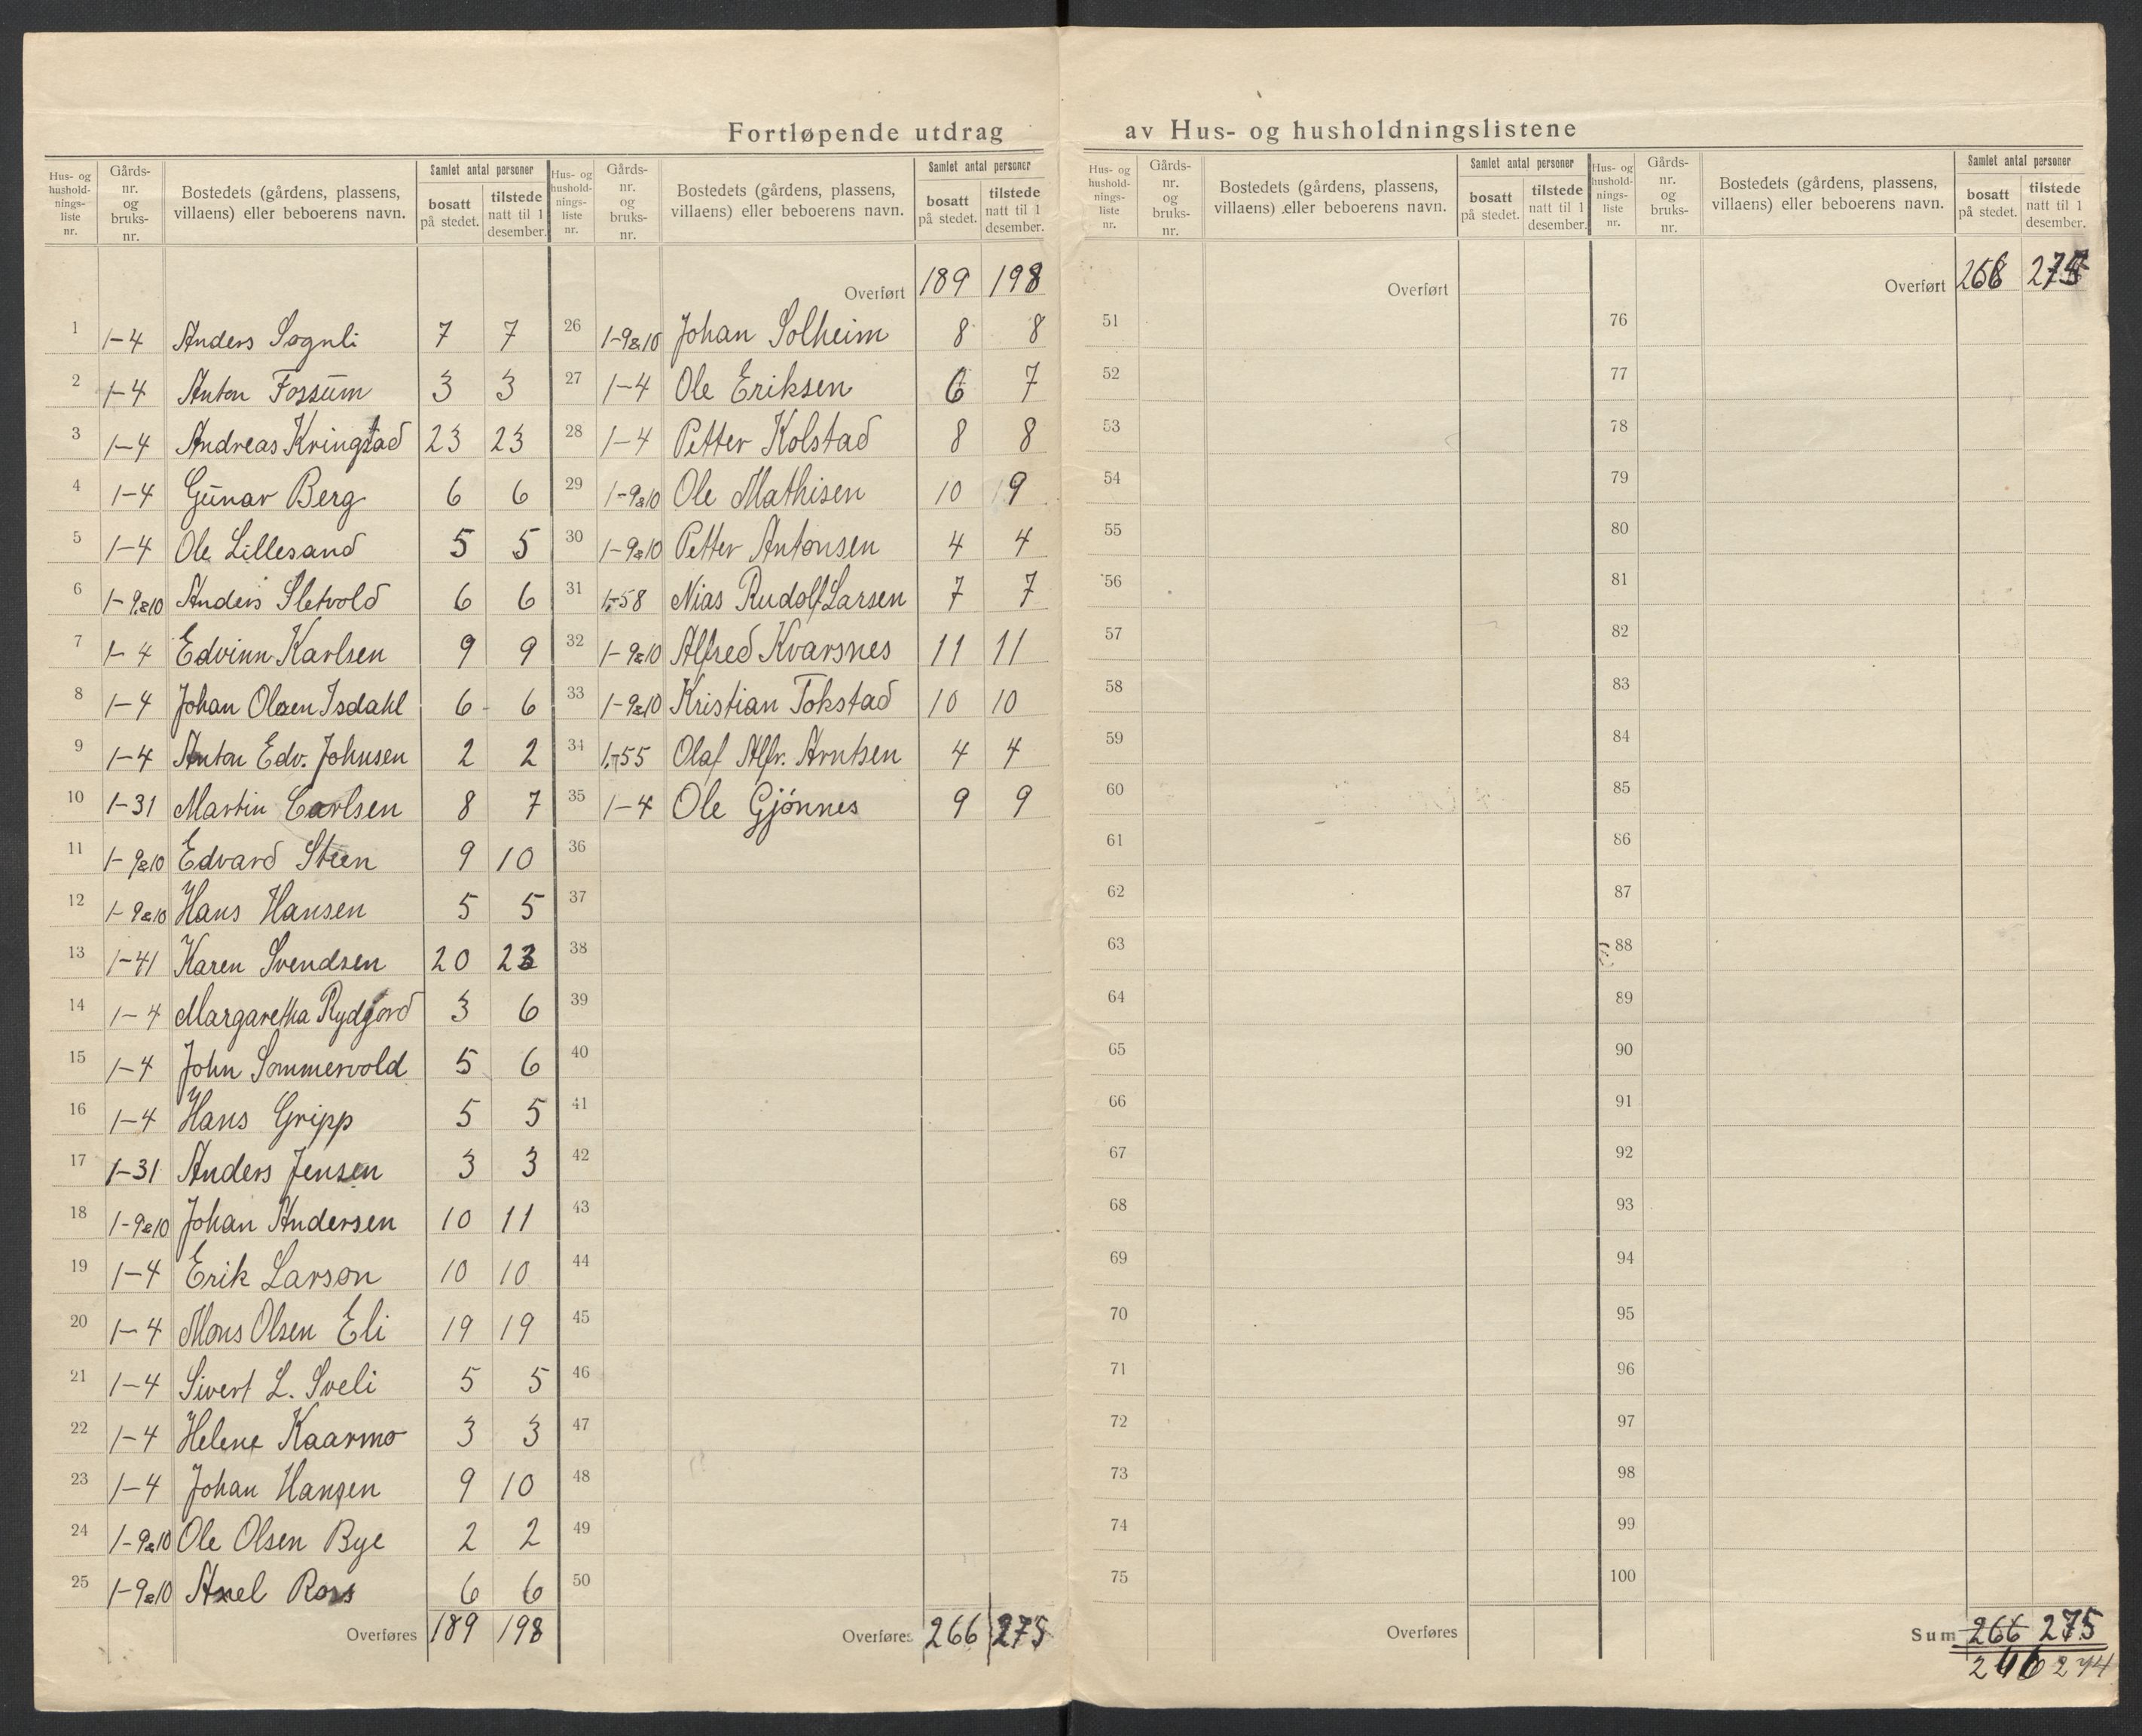 Fortløpende utdrag av Hus- og husholdningslistene
Hus- og husholdnings-liste nr. | Gårds-nr. og bruks-nr. | Bostedets (gårdens, plassens, villaens) eller beboerens navn. | Samlet antal personer | bosatt på stedet. | tilstede natt til 1 desember.
1 1-4 Anders Sognli 7 7
2 1-4 Anton Fossum 3 3
3 1-4 Andreas Kringstad 23 23
4 1-4 Gunar Berg 6 6
5 1-4 Ole Lillesand 5 5
6 1-9&10 Anders Sletvold 6 6
7 1-4 Edvinn Karlsen 9 9
8 1-4 Johan Olsen Isdahl 6 6
9 1-4 Anton Edv. Johnsen 2 2
10 1-31 Martin Carlsen 8 7
11 1-9&10 Edvard Steen 9 10
12 1-9&10 Hans Hansen 5 5
13 1-41 Karen Svendsen 20 23
14 1-4 Margaretha Rydgord 3 6
15 1-4 John Sommervold 5 6
16 1-4 Hans Gripp 5 5
17 1-31 Anders Jensen 3 3
18 1-9&10 Johan Andersen 10 11
19 1-4 Erik Larson 10 10
20 1-4 Mons Olsen Eli 19 19
21 1-4 Sivert L. Sveli 5 5
22 1-4 Helene Kaarmo 3 3
23 1-4 Johan Hansen 9 10
24 1-9&10 Ole Olsen Bye 2 2
25 1-9&10 Axel Ross 6 6
Overføres 189 198
Hus- og husholdnings-liste nr. | Gårds-nr. og bruks-nr. | Bostedets (gårdens, plassens, villaens) eller beboerens navn. | Samlet antal personer | bosatt på stedet. | tilstede natt til 1 desember.
Overført 189 198
26 1-9&10 Johan Solheim 8 8
27 1-4 Ole Eriksen 6 7
28 1-4 Petter Kolstad 8 8
29 1-9&10 Ole Mathisen 10 9
30 1-9&10 Petter Antonsen 4 4
31 1-58 Nias Rudolf Larsen 7 7
32 1-9&10 Alfred Kvarsnes 11 11
33 1-9&10 Kristian Tokstad 10 10
34 1-55 Olaf Alfr. Arntsen 4 4
35 1-4 Ole Gjönnes 9 9
36
37
38
39
40
41
42
43
44
45
46
47
48
49
50
Overføres 266 275
Hus- og husholdnings-liste nr. | Gårds-nr. og bruks-nr. | Bostedets (gårdens, plassens, villaens) eller beboerens navn. | Samlet antal personer | bosatt på stedet. | tilstede natt til 1 desember.
Overført
51
52
53
54
55
56
57
58
59
60
61
62
63
64
65
66
67
68
69
70
71
72
73
74
75
Overføres
Hus- og husholdnings-liste nr. | Gårds-nr. og bruks-nr. | Bostedets (gårdens, plassens, villaens) eller beboerens navn. | Samlet antal personer | bosatt på stedet. | tilstede natt til 1 desember.
Overført 266 275
76
77
78
79
80
81
82
83
84
85
86
87
88
89
90
91
92
93
94
95
96
97
98
99
100
Sum 266 275
274